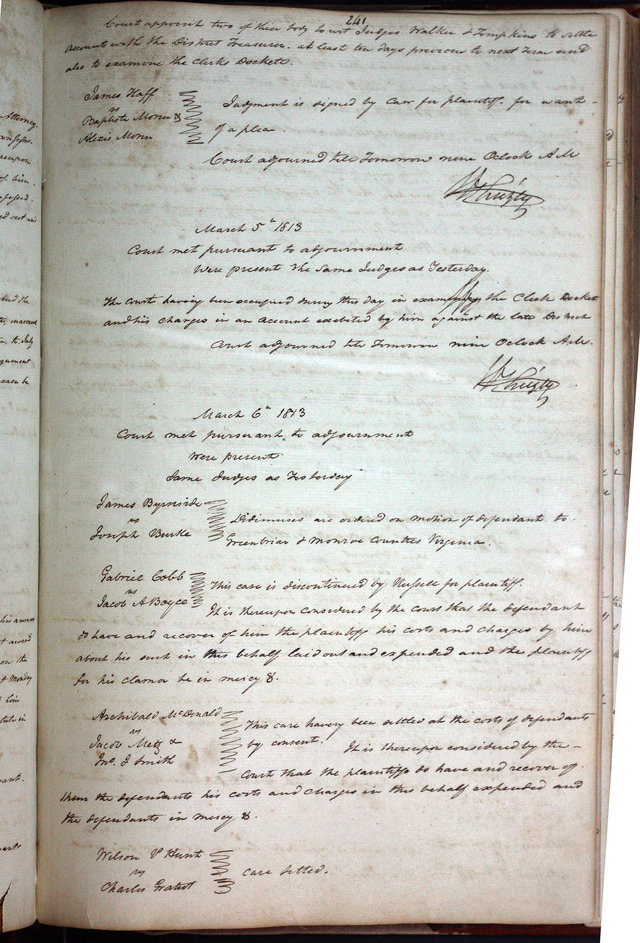 241
Court appoint two of their body to wit Judges Walker & Tompkins to settle
account with the District Treasurer. at least ten days previous to next Term and
also to examine the Clerks Dockets.
James Haff
vs
Baptiste Morin &
Alexis Morin
Judgment is signed by Carr for plaintiff. for want
of a plea.
Court adjourned till Tomorrow nine Oclock A.M
March 5th 1813
Court met pursuant to adjournment
Were present the same Judges as Yesterday.
The Court having been occupied during this day in examining the Clerk Docket
and his charges in an account exebited by him against the late District
Court adjourned till Tomorrow nine Oclock A.M.
March 6th 1813
Court met pursuant to adjournment
Were present
Same Judges as Yesterday
James Byrnside
vs
Joseph Burke
Didimuses are ordered on motion of defendant to
Greenbriar & Monroe Counties Virginia.
Gabriel Cobb
vs
Jacob A Boyce
This case is discontinued by Russell for plaintiff.
It is thereupon considered by the court that the defendant
do have and recover of him the plaintiff his costs and charges by him
about his suit in this behalf laid out and expended and the plaintiff
for his clamor be in mercy &.
Archibald McDonald
vs
Jacob Metz &
Jno. J Smith
This case having been settled at the costs of defendants
by consent. It is thereupon considered by the
Court that the plaintiffs do have and recover of
them the defendants his costs and charges in this behalf expended and
the defendants in mercy &.
Wilson P Hunt
vs
Charles Gratiot
case settled.